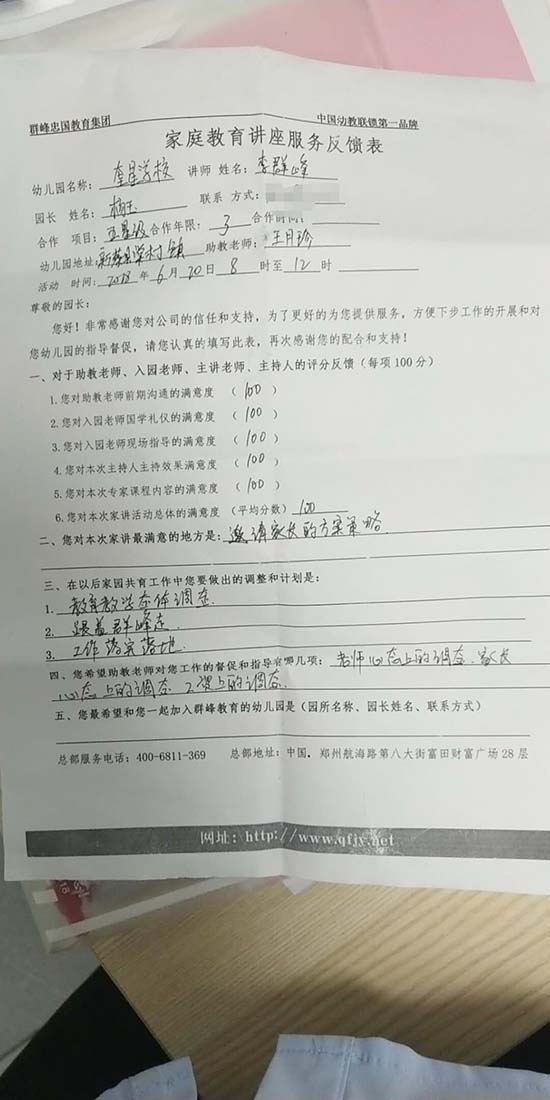 群峰忠国教育集团 中国幼教联锁第一品牌
家庭教育讲座服务反馈表
幼儿园名称：奎星学校 讲师 姓名：李群峰
园长 姓名：杨玉 联系 方式：
合作 项目：五星级 合作年限：3 合作时间：
幼儿园地址：学村镇 助教老师：王月珍
活动 时间：2018 年 6 月 20 日 8 时至 12 时
尊敬的园长：
您好！非常感谢您对公司的信任和支持，为了更好的为您提供服务，方便下步工作的开展和对
您幼儿园的指导督促，请您认真的填写此表，再次感谢您的配合和支持！
一、对于助教老师、入园老师、主讲老师、主持人的评分反馈（每项100分）
1.您对助教老师前期沟通的满意度 （ 100 ）
2.您对入园老师国学礼仪的满意度 （ 100 ）
3.您对入园老师现场指导的满意度 （ 100 ）
4.您对本次主持人主持效果满意度 （ 100 ）
5.您对本次专家课程内容的满意度 （ 100 ）
6.您对本次家讲活动总体的满意度 （平均分数） 100
二、您对本次家讲最满意的地方是：邀请家长的方案策略.
三、在以后家园共育工作中您要做出的调整和计划是：
1. 教育教学整体调整
2. 跟着群峰走
3. 工作落实落地.
四、您希望助教老师对您工作的督促和指导有哪几项：老师心态上的调整.家长
心态上的调整 工资上的调整.
五、您最希望和您一起加入群峰教育的幼儿园是（园所名称、园长姓名、联系方式）
总部服务电话：400-6811-369 总部地址：中国．郑州航海路第八大街富田财富广场28层
网址：http://www.qfjy.net